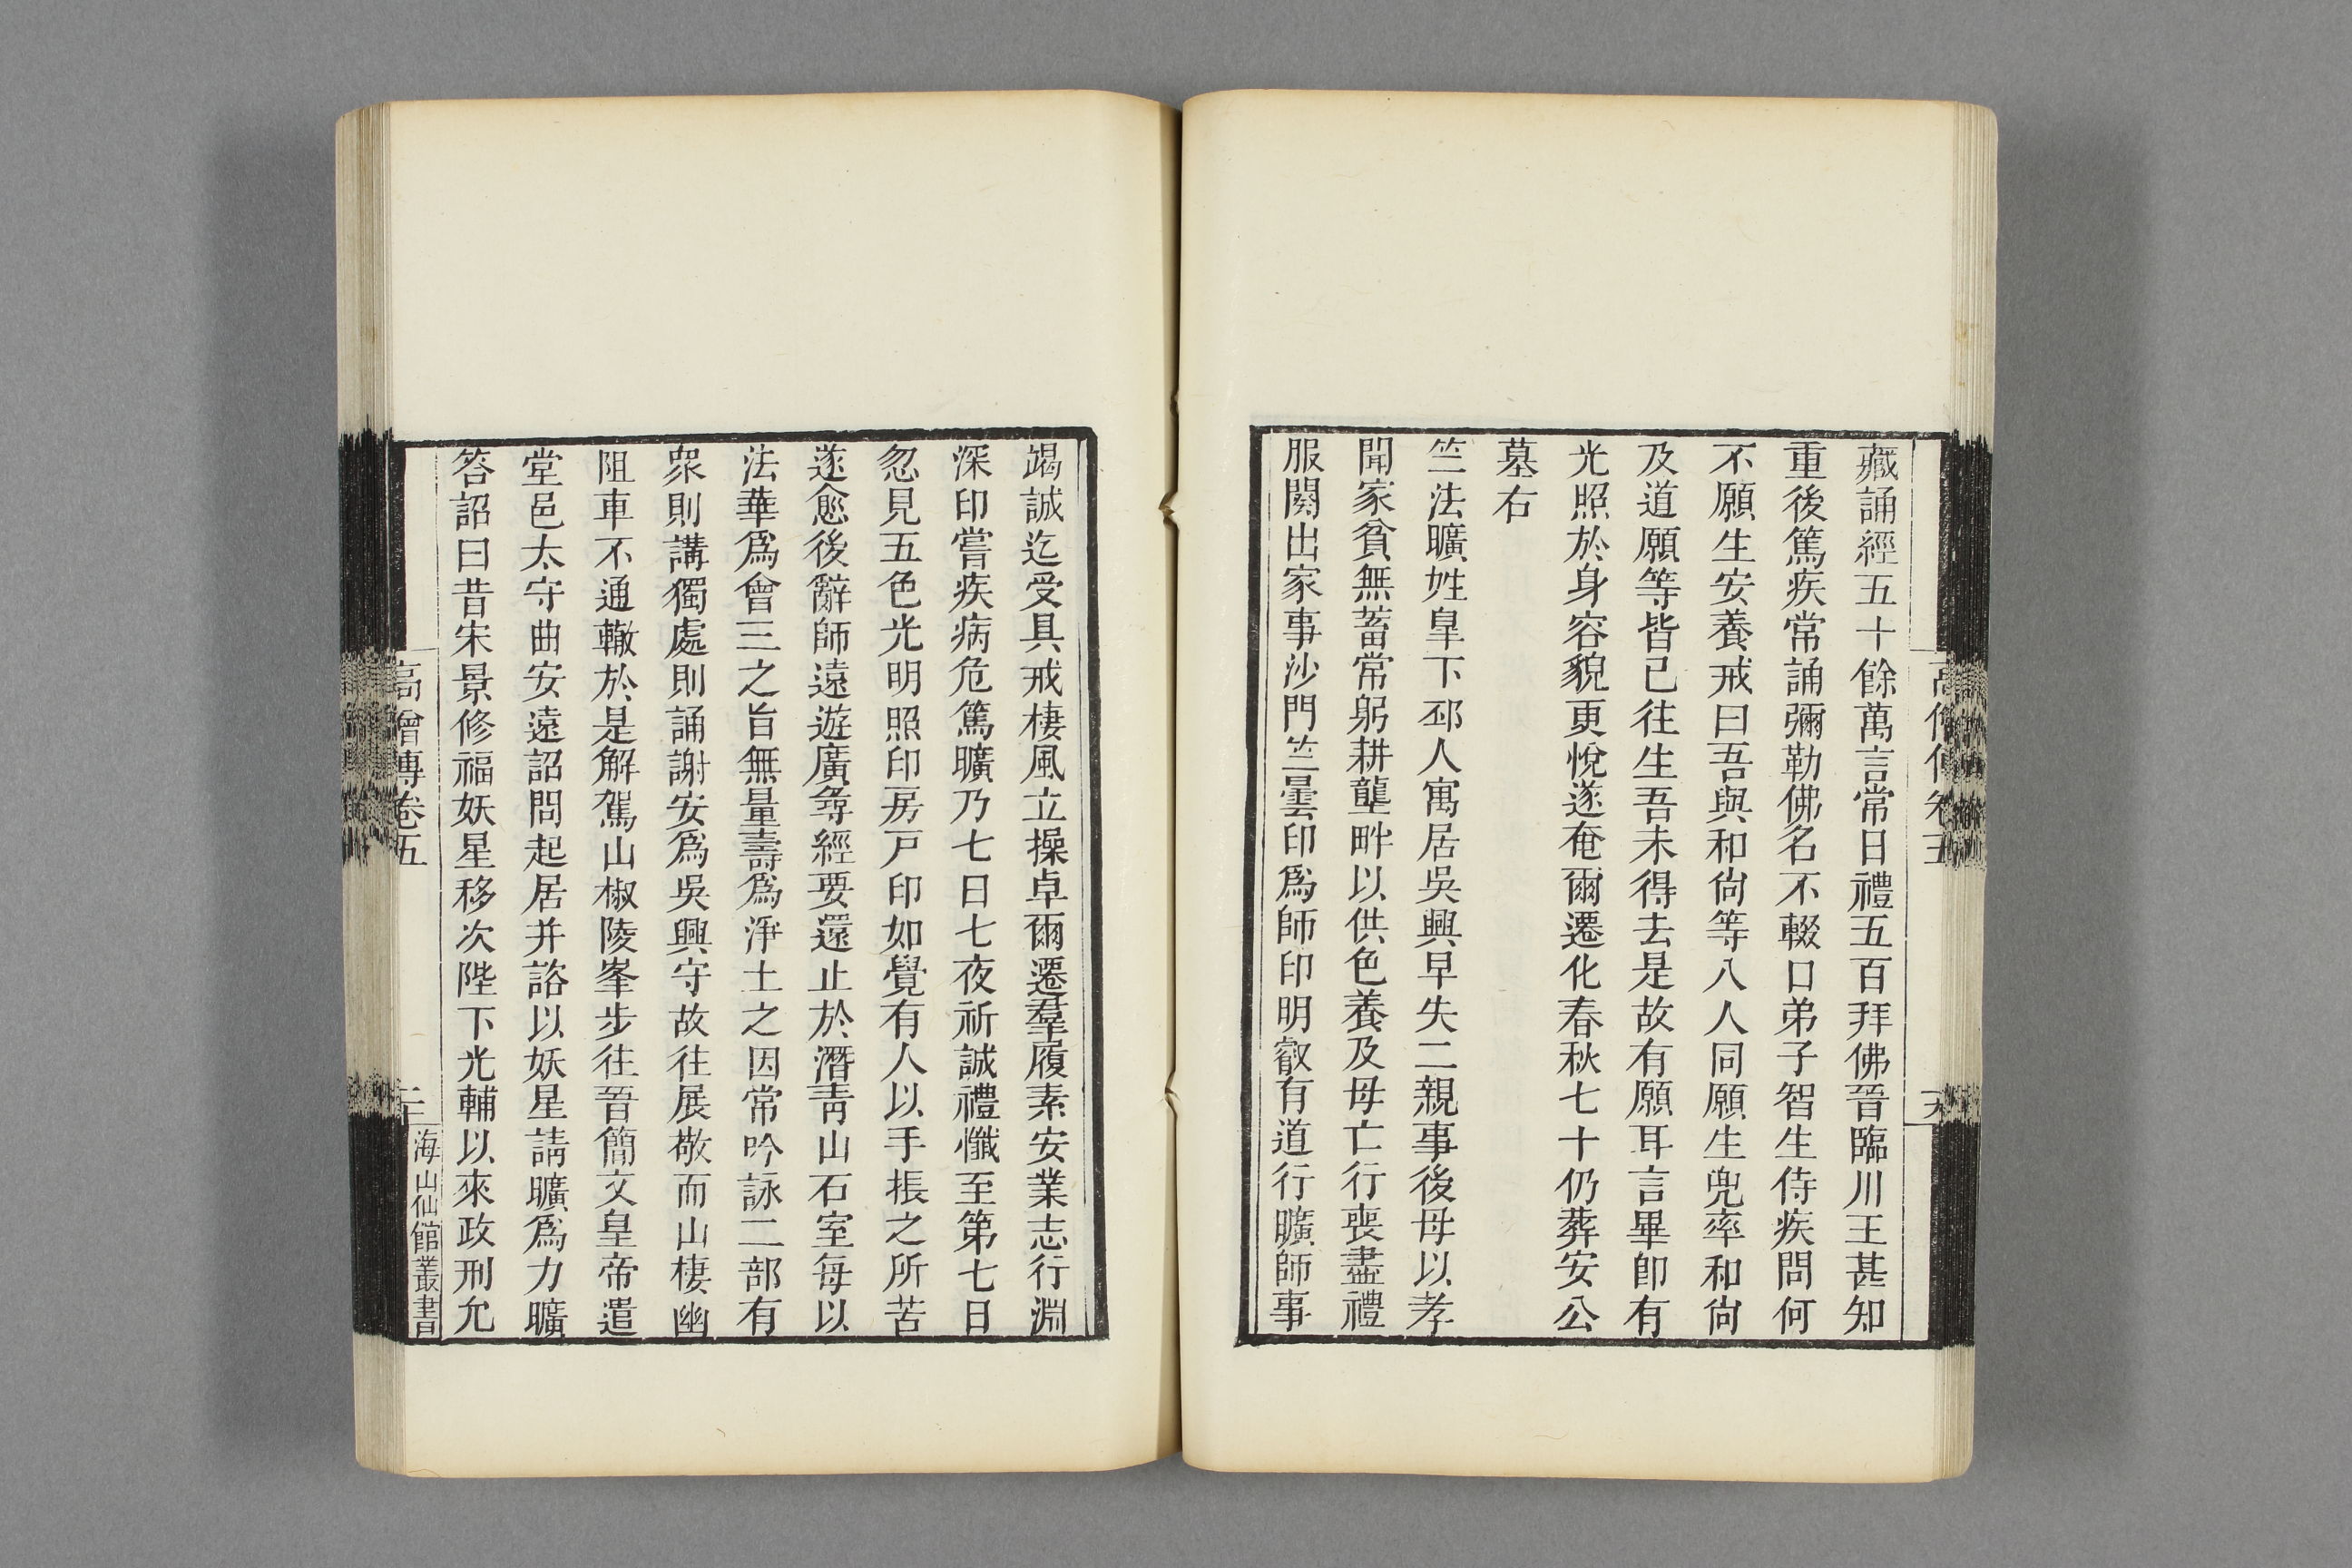 藏誦經五十餘萬言常日禮五百拜佛晉臨川王甚知
重後篤疾常誦彌勒佛名不輟口弟子智生侍疾問何
不願生安養戒曰吾與和尙等八人同願生兜率和尙
及道願等皆已往生吾未得去是故有願耳言畢卽有
光照於身容貌更悅遂奄爾遷化春秋七十仍葬安公
墓右
竺法曠姓臯下邳人寓居吳興早失二親事後母以孝
聞家貧無蓄常躬耕壟畔以供色養及母亡行喪盡禮
服闋出家事沙門竺曇印爲師印明叡有道行曠師事
竭誠迄受具戒棲風立操卓爾遷羣履素安業志行淵
深印嘗疾病危篤曠乃七日七夜祈誠禮懺至第七日
忽見五色光明照印房戸印如覺有人以手振之所苦
遂愈後辭師遠遊廣尋經要還止於潛青山石室每以
法華爲會三之旨無量壽爲淨土之因常吟詠二部有
衆則講獨處則誦謝安爲吳興守故往展敬而山棲幽
阻車不通轍於是解駕山椒陵峯步往晉簡文皇帝遣
堂邑太守曲安遠詔問起居并諮以妖星請曠爲力曠
答詔曰昔宋景修福妖星移次陛下光輔以來政刑允
高僧傳卷五
海山仙館叢書